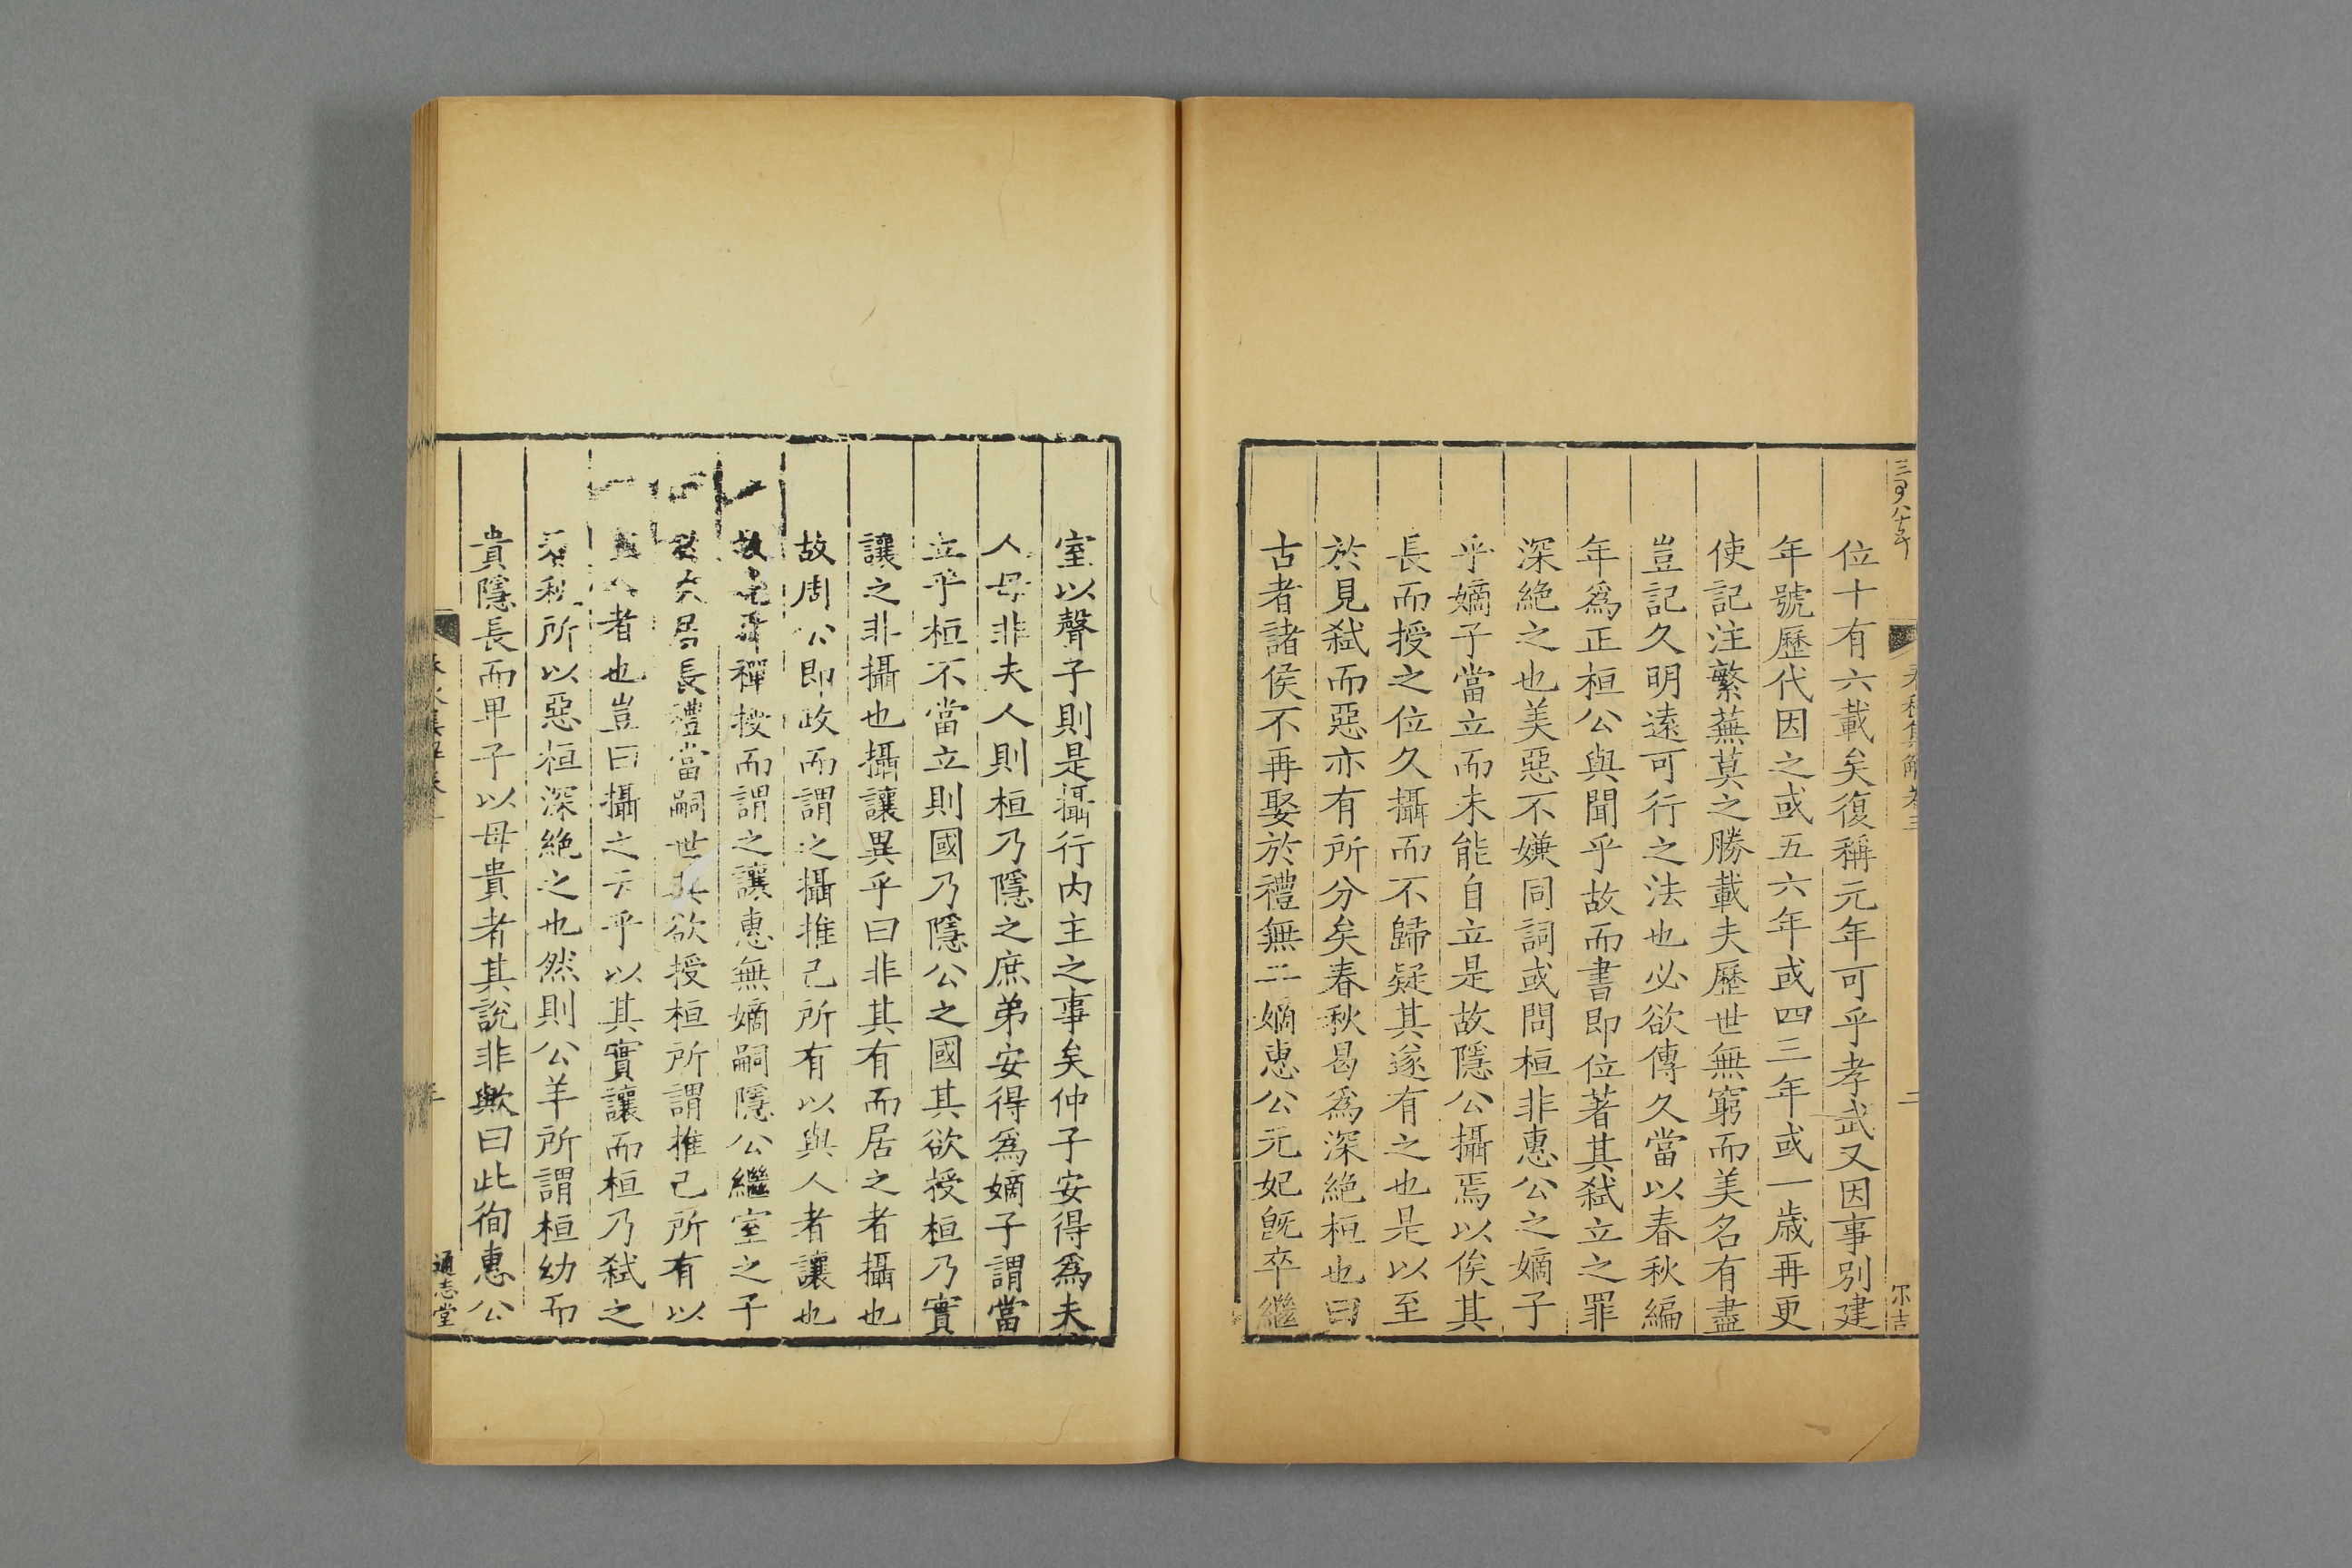 位十有六載矣復稱元年可乎孝武又因事別建
年號歷代因之或五六年或四三年或一歲再更
使記注繁蕪莫之勝載夫歷世無窮而美名有盡
豈記久明遠可行之法也必欲傳久當以春秋編
年爲正桓公與聞乎故而書即位著其弒立之罪
深絶之也美惡不嫌同詞或問桓非惠公之嫡子
乎嫡子當立而未能自立是故隱公攝焉以俟其
長而授之位久攝而不歸疑其遂有之也是以至
於見弒而惡亦有所分矣春秋曷爲深絶桓也曰
古者諸侯不再娶於禮無二嫡惠公元妃旣卒繼
尔吉
二
室以聲子則是攝行内主之事矣仲子安得爲夫
人母非夫人則桓乃隱之庶弟安得爲嫡子謂當
立乎桓不當立則國乃隱公之國其欲授桓乃實
讓之非攝也攝讓異乎曰非其有而居之者攝也
故周公即政而謂之攝推己所有以與人者讓也
故堯舜禪授而謂之讓惠無嫡嗣隱公繼室之子
於次居長禮當嗣世其欲授桓所謂推己所有以
與人者也豈曰攝之云乎以其實讓而桓乃弒之
春秋所以惡桓深絶之也然則公羊所謂桓幼而
貴隱長而卑子以母貴者其說非歟曰此徇惠公
通志堂